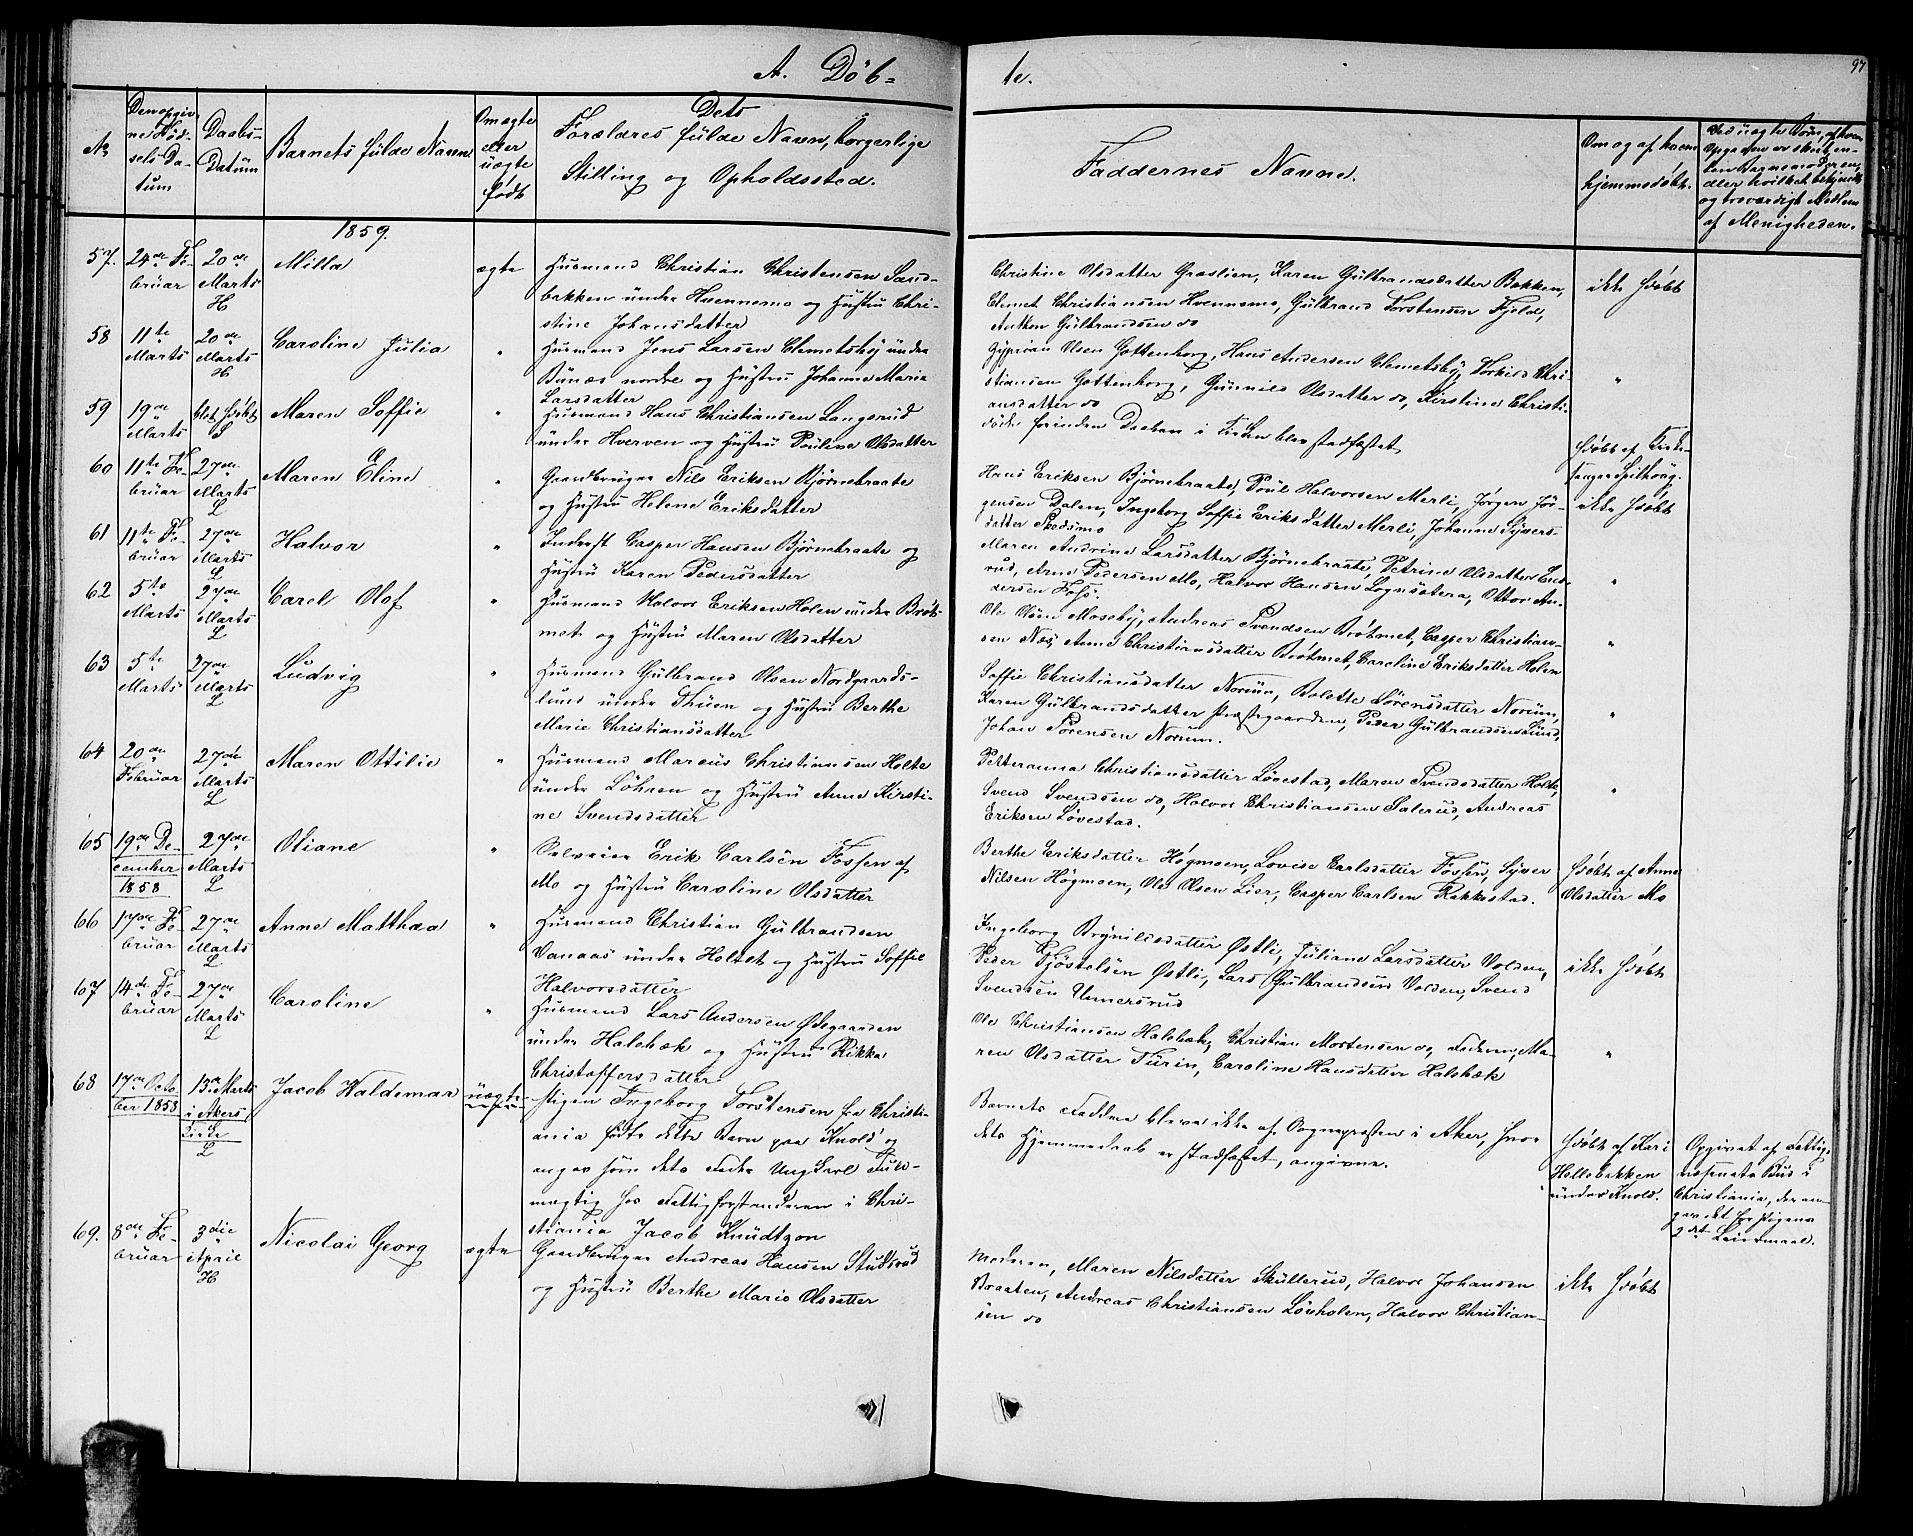 A. Døb=
te.
97
No
Den opgiv
ne Fød=
sels Da=
tum
Daabs=
Datum
Barnets fulde Navn
Om ægte
eller
uægte
født
Dets
Forældres fulde Navn, borgerlige
Stilling og Opholdssted.
Faddernes Navne.
Om og af hvem
hjemmedøbt.
og troværdigt Medlem
af Menigheden.
1859.
57.
24de Fe=
bruar
20de
Marts
H
Milla
ægte
Husmand Christian Christensen Sand=
bakken under Huennemo og Hustru Chri=
stine Johansdatter
Christine Olsdatter Græslien, Karen Gulbrandsdatter Bakken,
Clemet Christiansen Hvennemo, Gulbrand Torstensen Fjeld,
Anthon Gulbrandsen do
ikke hdøbt
58
11te
Marts
20de
Marts
H
Caroline Julia
"
Husmand Jens Larsen Clemetsby under
Bunæs nordre og Hustru Johanne Maria
Larsdatter
Cyprian Olsen Gottenborg, Hans Andersen Clemetsby, Torkild Chri=
stiansen Gottenborg, Gunnild Olsdatter do, Kirstine Christi=
ansdatter do
"
59
19de
Marts
blot hdøbt
S
Maren Soffie
"
Husmand Hans Christiansen Langsrud
under Hverven og Hustru Pouline Olsdatter
døde forinden Daaben i Kirken blev stadfæstet
hdøbt af Kirke=
sanger Spilhoug.
60
11te Fe=
bruar
27de
Marts
L
Maren Eline
"
Gaardbruger Nils Eriksen Bjørnebraate
og Hustru Helene Eriksdatter
Hans Eriksen Bjørnebraate, Poul Halvorsen Merli, Jørgen Jør=
gensen Dalen, Ingeborg Soffie Eriksdatter Merli, Johanne Syvers=
datter Skedsmo
ikke hdøbt
61
11te Fe=
bruar
27de
Marts
L
Halvor
"
Inderst Casper Hansen Bjørnebraate og
Hustru Karen Pedersdatter
Maren Andrine Larsdatter Bjørnebraate, Petrine Olsdatter
rud, Arne Pedersen Mo, Halvor Hansen Lognsætera, Ottor An=
dersen Foss.
"
62
5te
Marts
27de
Marts
L
Carel Olof
"
Husmand Halvor Eriksen Holen under Brøt=
met og Hustru Maren Olsdatter
Ole Olsen Moseby, Andreas Svendsen Brøtmet, Casper Christian=
sen Næs, Anne Christiansdatter Brøtmet, Caroline Eriksdatter Holen
"
63
5te
Marts
27de
Marts
L
Ludvig
"
Husmand Gulbrand Olsen Nordgaards=
lund under Thuen og Hustru Berthe
Marie Christiansdatter
Soffie Christiansdatter Norum, Bolette Sørensdatter Norum,
Karen Gulbrandsdatter Præstegaarden, Peder Gulbrandsenslund,
Johan Sørensen Norum.
"
64
20de
Februar
27de
Marts
L
Maren Ottilie
"
Husmand Marcus Christiansen Holte
under Løhren og Hustru Anne Kirsti=
ne Svendsdatter
Petteranna Christiansdatter Løvestad, Maren Svendsdatter Holte,
Svend Svendsen do, Halvor Christiansen Salerud, Andreas
Eriksen Løvestad.
"
65
19de De=
cember
1858
27de
Marts
L
Oliane
"
Selveier Erik Carlsen Fossen af
Mo og Hustru Caroline Olsdatter
Berthe Eriksdatter Høgmoen, Lovise Carlsdatter Fossen, Syver
Nilsen Høgmoen, Ole Olsen Lier, Casper Carlsen Rakkestad.
hdøbt af Anne
Olsdatter Mo
66
17de Fe=
bruar
27de
Marts
L
Anne Matthea
"
Husmand Christian Gulbrandsen
Vanaas under Holtet og Hustru Soffie
Halvorsdatter
Ingeborg Brynildsdatter Østli, Juliane Larsdatter Volden,
Peder Tjøstelsen Østli, Lars Gulbrandsen Volden, Svend
Svendsen Unnersrud
ikke hdøbt
67
14de Fe=
bruar
27de
Marts
L
Caroline
"
Husmand Lars Andersen Ødegaarden
under Halsbæk og Hustru Rikka
Christoffersdatter
Ole Christiansen Halsbæk, Christian Mortensen do, Faderen, Ma=
ren Olsdatter Turin, Caroline Hansdatter Halsbæk
"
68
17de Octo
ber 1858
13de Marts
i Akers
Kirke
L
Jacob Waldemar
uægte
Pigen Ingeborg Torstensen fra Christi=
ania fødte dette Barn paa Knold og
angav som dets Fader Ungkarl Fuld=
mægtig hos Fattigforstanderen i Chri=
stiania Jacob Knudtzon
Barnets Faddere bleve ikke af Sognepræsten i Aker, hvor
dets Hjemmedaab er stadfæstet, angivne.
hdøbt af Kari
Hellebakken
under Knold.
Opgivet af Fattig
væsenets Bud i
Christiania, der an=
gav det for Pigens
3die Leiermaal.
69.
8de Fe=
bruar
3die
April
H
Nicolai Georg
ægte
Gaardbruger Andreas Hansen Studsrud
og Hustru Berthe Marie Olsdatter
Moderen, Maren Nilsdatter Skullerud, Halvor Johansen
Braaten, Andreas Christiansen Løvholen, Halvor Christian=
sen do
ikke hdøbt